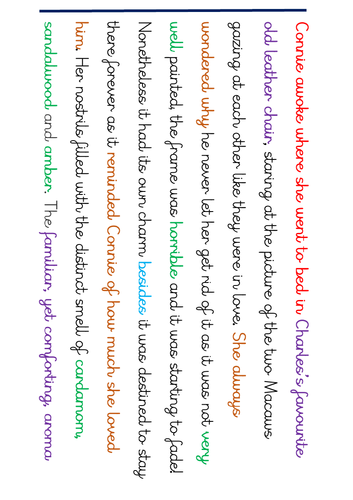 Connie awoke where she went to bed in Charles's favourite
old leather chair, staring at the picture of the two Macaws
gazing at each other like they were in love. She always
wondered why he never let her get rid of it as it was not very
well painted, the frame was horrible and it was starting to fade!
Nonetheless it had its own charm besides it was destined to stay
there forever as it reminded Connie of how much she loved
him. Her nostrils filled with the distinct smell of cardamom,
sandalwood and amber. The familiar, yet comforting, aroma